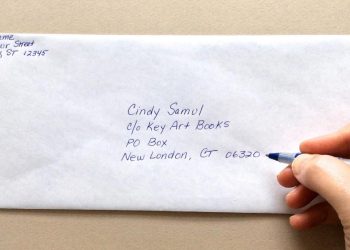 ame
or Street
ST 12345
Cindy Samul
c/o Key Art Books
PO Box
New London, CT 06320